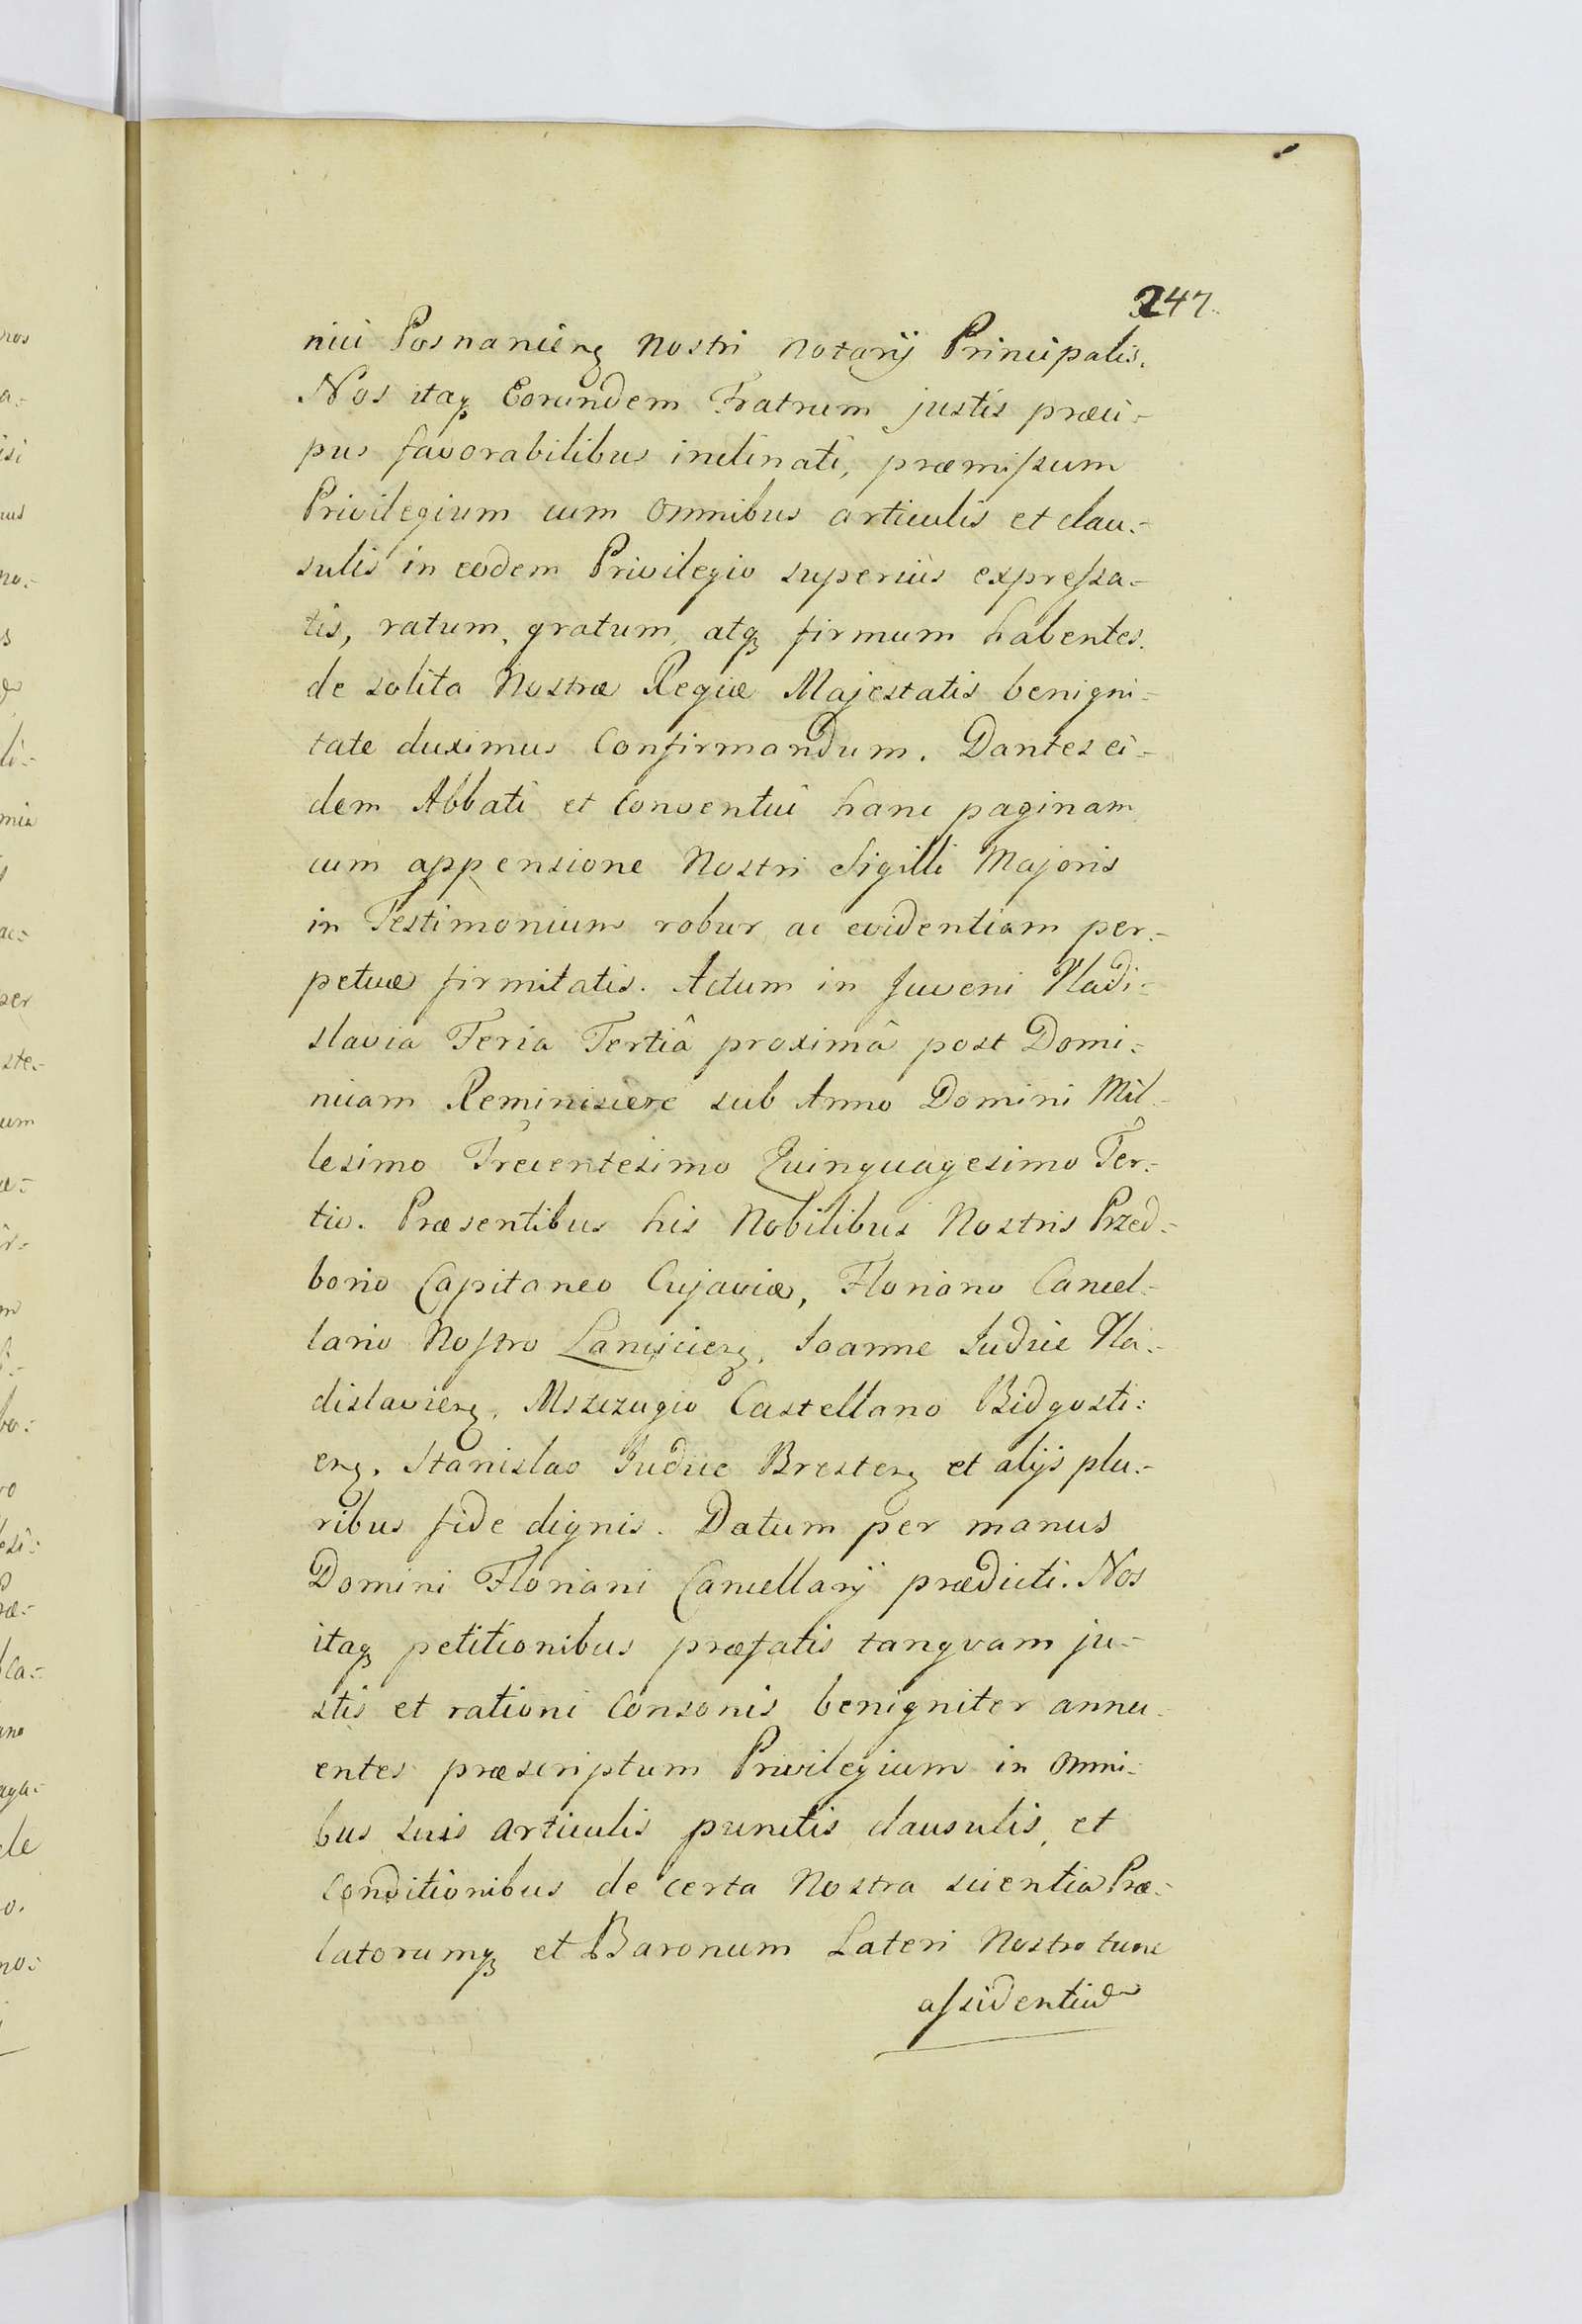 247.
nici Posnanieng nostri notarij Principalis.
Nos itaq Eorundem Fratrum justis præci-
pus favorabilibus inclinati, præmissum
Privilegium cum omnibus articulis et clau-
sulis in eodem Privilegio superius expressa-
tis, ratum, gratum, atq firmum habentes.
de solita Nostræ Regiæ Majestatis benigni-
tate duximus Confirmandum. Dantes ei-
dem Abbati et Conventui hanc paginam
cum appensione Nostri Sigilli Majoris
in Testimonium robur ac evidentiam per-
petuæ firmitatis. Actum in Juveni Vladi-
slavia Feria Tertiâ proximâ post Domi-
nicam Reminiscere sub Anno Domini Mil-
lesimo Trecentesimo Quinquagesimo Ter-
tio. Præsentibus his Nobilibus Nostris Przed-
borio Capitaneo Cujaviæ, Floriano Cancel-
lario Nostro Lancicieng, Joanne Judice Vla-
dislavieng, Mszczugio Castellano Bidgosti-
eng, Stanislao Judice Bresteng et alijs plu-
ribus fide dignis. Datum per manus
Domini Floriani Cancellarij prædicti. Nos
itaq petitionibus præfatis tanquam ju-
stis et rationi Consonis benigniter annu-
entes præscriptum Privilegium in omni-
bus suis articulis punctis clausulis, et
conditionibus de certa Nostra scientia Præ-
latorumq et Baronum Lateri Nostro tunc
assidentium